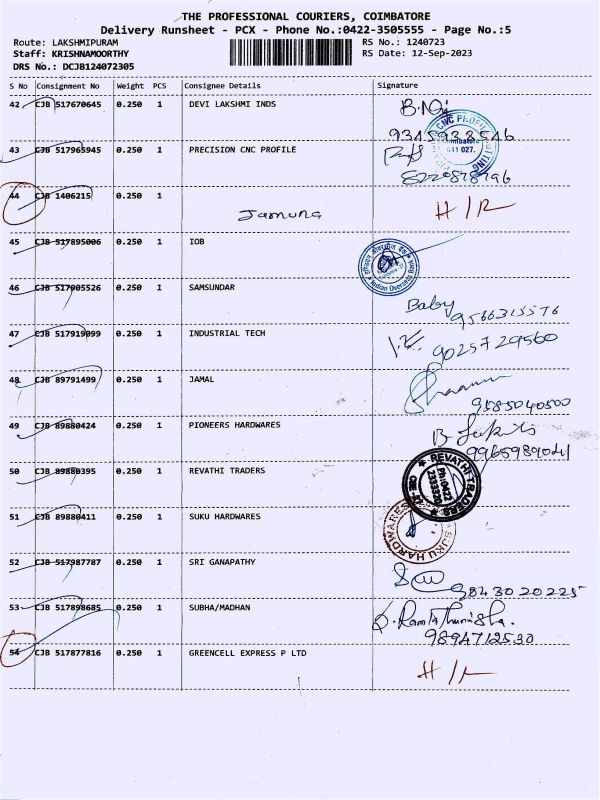 THE PROFESSIONAL COURIERS, COIMBATORE
Delivery Runsheet - PCX - Phone No.:0422-3505555 - Page No.:5
Route: LAKSHMIPURAM RS No.: 1240723
Staff: KRISHNAMOORTHY RS Date: 12-Sep-2023
DRS No.: DCJB124072305
S No Consignment No Weight PCS Consignee Details Signature
42 CJB 517670645 0.250 1 DEVI LAKSHMI INDS
43 CJB 517965945 0.250 1 PRECISION CNC PROFILE
8220878796
44 CJB 1406215 0.250 1
Jamuna H/R
45 CJB 517895006 0.250 1 IOB
Indian Overseas Bank
46 CJB 517905526 0.250 1 SAMSUNDAR
Baby
9566315576
47 CJB 517919099 0.250 1 INDUSTRIAL TECH
9025729560
48 CJB 89791499 0.250 1 JAMAL
9585040500
49 CJB 89880424 0.250 1 PIONEERS HARDWARES
9965989041
50 CJB 89880395 0.250 1 REVATHI TRADERS
REVATHI TRADERS
51 CJB 89880411 0.250 1 SUKU HARDWARES
SUKU HARDWARES
52 CJB 517987787 0.250 1 SRI GANAPATHY
9843020225
53 CJB 517898685 0.250 1 SUBHA/MADHAN
9894712530
54 CJB 517877816 0.250 1 GREENCELL EXPRESS P LTD
H/R